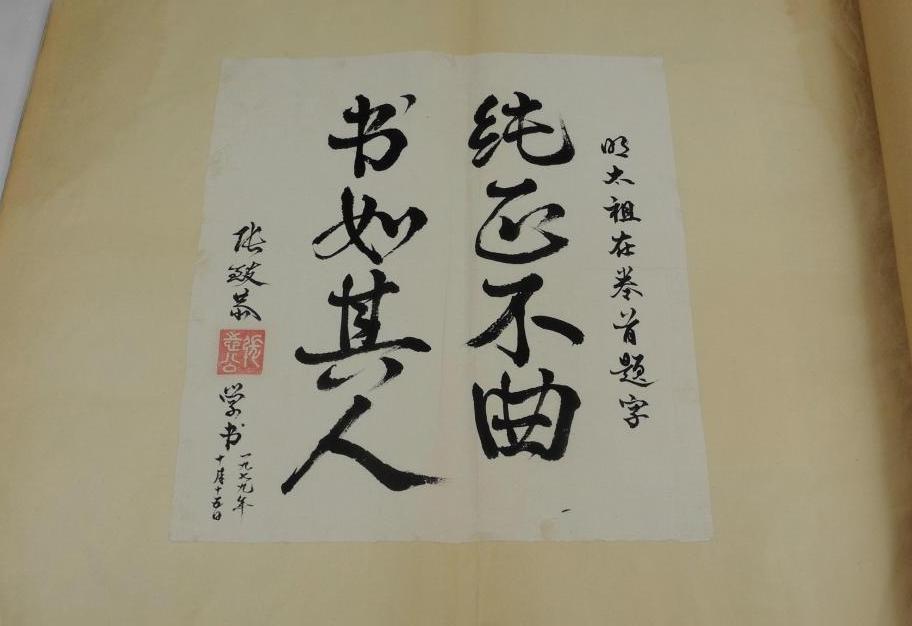 明太祖在卷首题字
纯正不曲
书如其人
张毅恭
学书
一九七九年
十月十五日